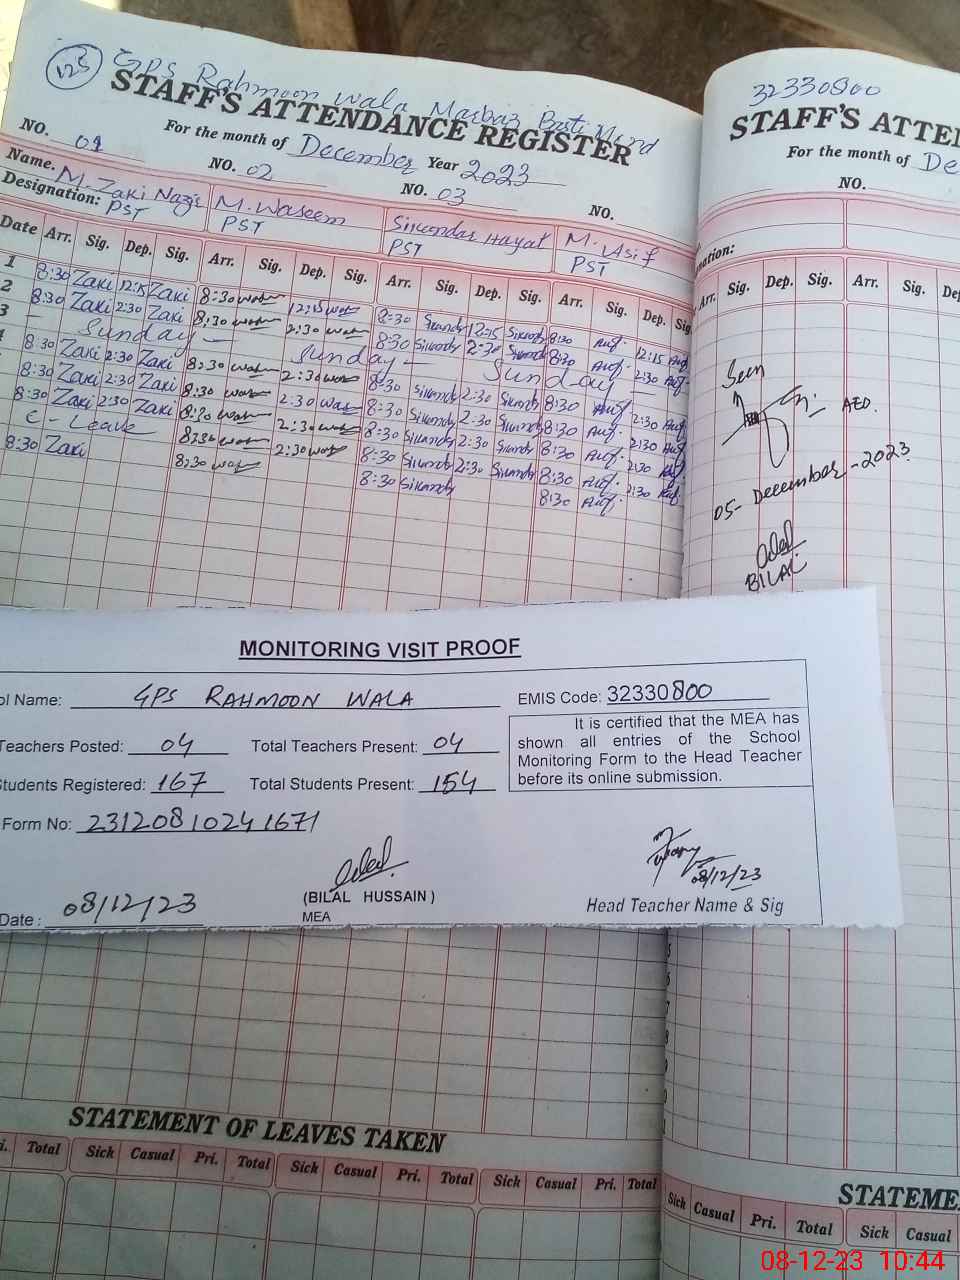 125 GPS Rahmoon Wala Marbaz Basti
32330800
STAFF'S ATTENDANCE REGISTER
STAFF'S ATTEN
For the month of December Year 2023
For the month of De
NO. 01 NO. 02 NO. 03 NO.
NO.
Name. M. Zaki Nazir M. Waseem Sikandar Hayat M. Asif
Designation: PST PST PST PST
nation:
Date Arr. Sig. Dep. Sig. Arr. Sig. Dep. Sig. Arr. Sig. Dep. Sig. Arr. Sig. Dep. Sig
Arr. Sig. Dep. Sig. Arr. Sig. De
1 8:30 Zaki 12:15 Zaki 8:30 12:15 8:30 12:15 8:30 12:15
2 8:30 Zaki 2:30 Zaki 8:30 2:30 8:30 2:30 8:30 2:30
3 - Sunday - Sunday - Sunday
8:30 Zaki 2:30 Zaki 8:30 2:30 8:30 2:30 8:30 2:30
8:30 Zaki 2:30 Zaki 8:30 2:30 8:30 2:30 8:30 2:30
8:30 Zaki 2:30 Zaki 8:30 2:30 8:30 2:30 8:30 2:30
C - Leave 8:30 2:30 8:30 2:30 8:30 2:30
8:30 Zaki 8:30 8:30 8:30
Seen
AEO.
05-December-2023
BILAL
MONITORING VISIT PROOF
ol Name: GPS RAHMOON WALA EMIS Code: 32330800
Teachers Posted: 04 Total Teachers Present: 04
Students Registered: 167 Total Students Present: 154
It is certified that the MEA has
shown all entries of the School
Monitoring Form to the Head Teacher
before its online submission.
Form No: 23120810241671
08/12/23
(BILAL HUSSAIN)
MEA
Head Teacher Name & Sig
Date: 08/12/23
STATEMENT OF LEAVES TAKEN
STATEME
i. Total Sick Casual Pri. Total Sick Casual Pri. Total Sick Casual Pri. Total
Sick Casual Pri. Total Sick Casual
08-12-23 10:44